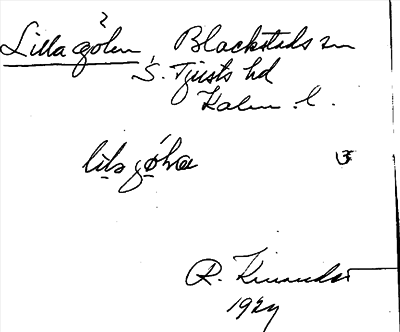 2
Lilla gölen, Blackstads sn
S. Tjusts hd
Kalm. l.
R. Kinander
1927